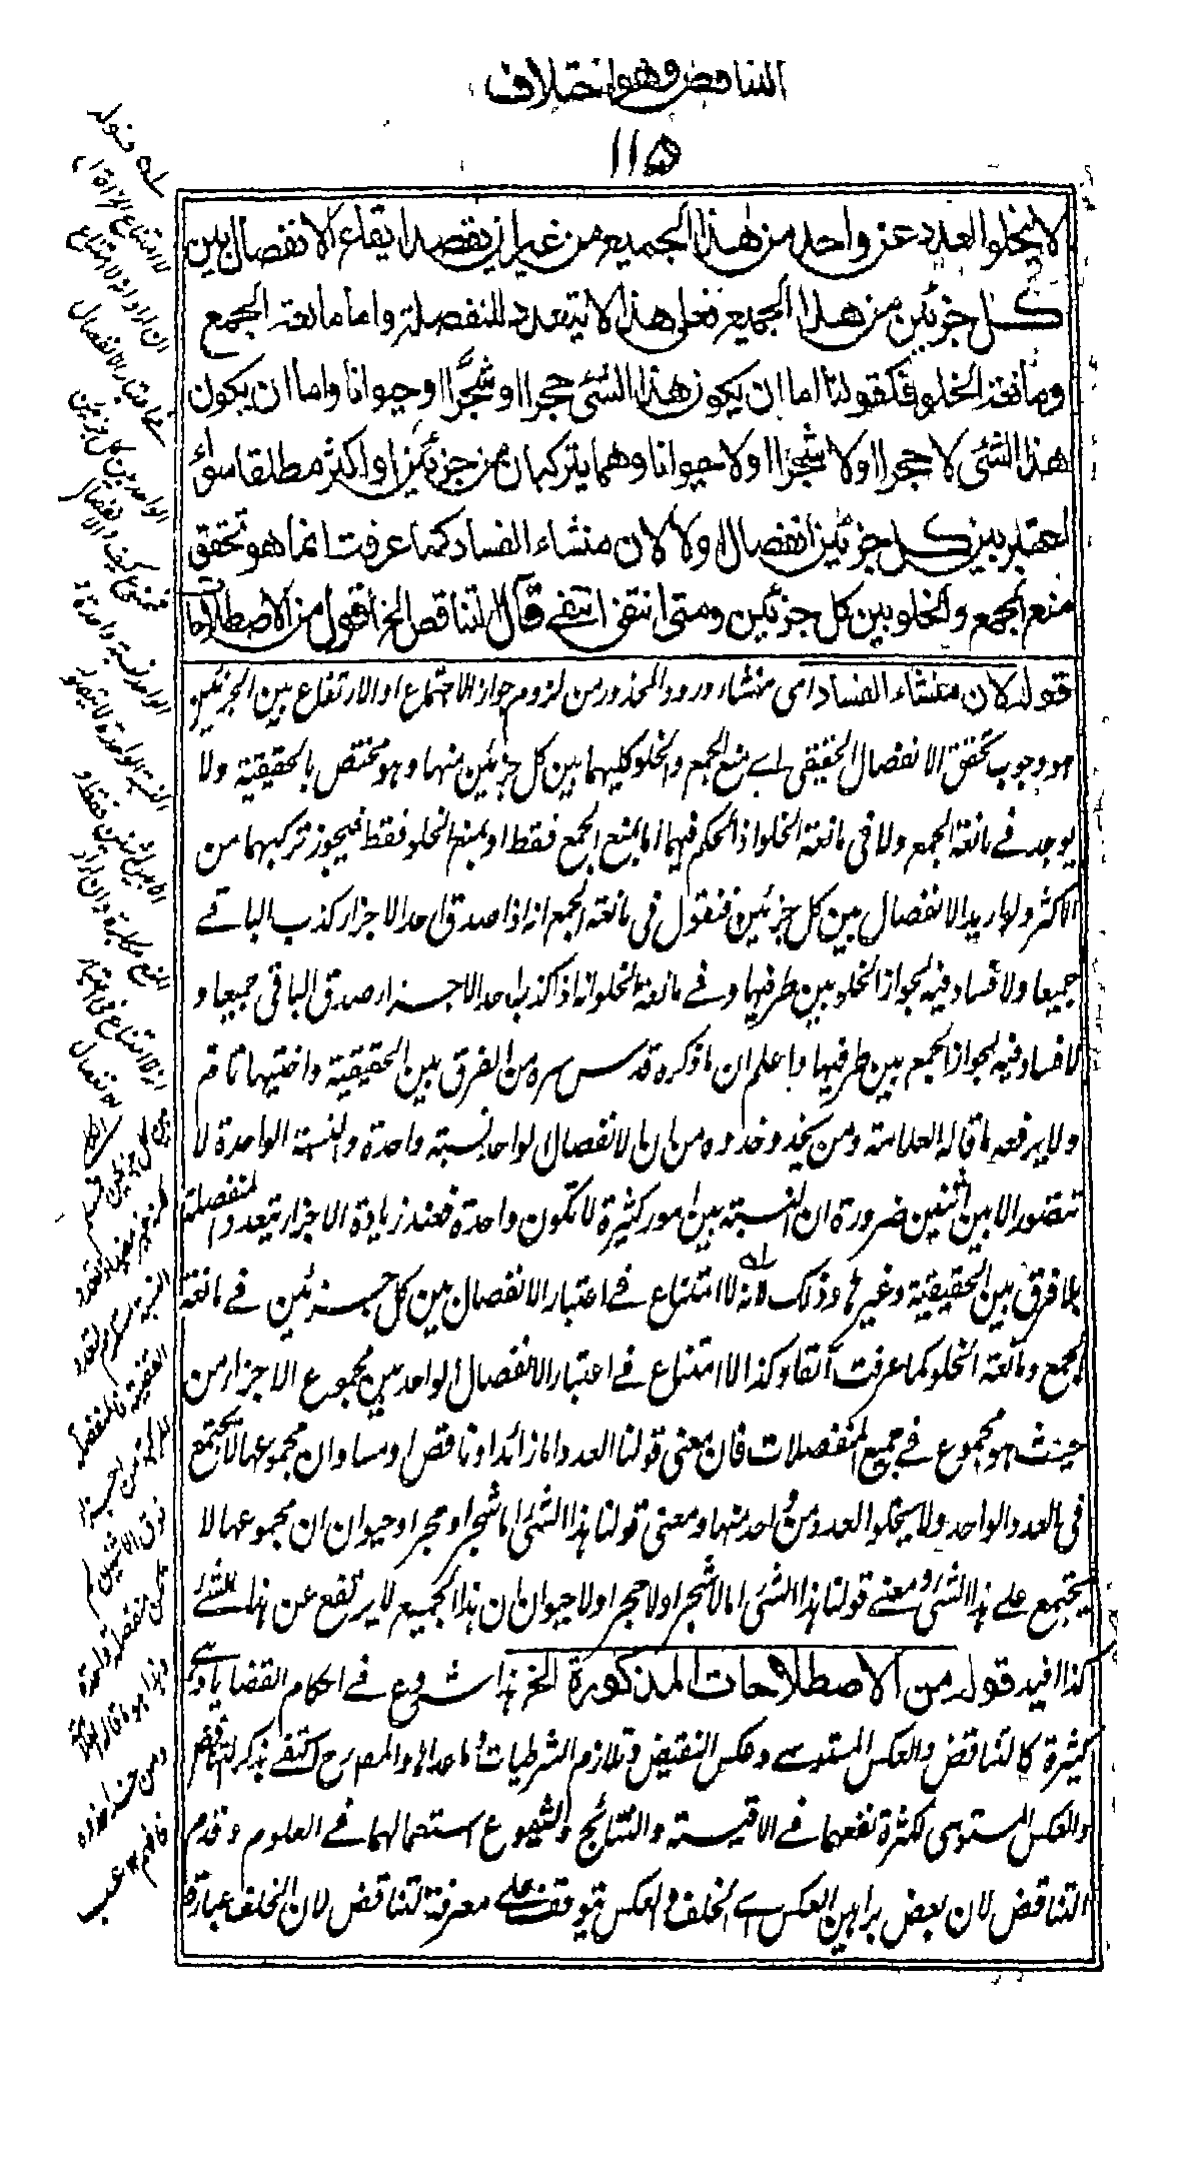 التناقض وهو اختلاف
١١٥
لا يخلو العدد عن واحد من هذا الجميع من غير ان يقصد ايقاع الانفصال بين
كل جزئين من هذا الجميع فعلى هذا لا يتعدد المنفصلة واما مانعة الجمع
ومانعة الخلو فكقولنا اما ان يكون هذا الشئ حجرا او شجرا او حيوانا واما ان يكون
هذا الشئ لا حجرا او لا شجرا او لا حيوانا وهما يتركبان من جزئين او اكثر مطلقا سواء
اعتبر بين كل جزئين انفصال اولا لان منشاء الفساد كما عرفت انما هو تحقق
منع الجمع والخلو بين كل جزئين ومتى انتفى انتفى قال التناقض الخ اقول من الاصطلاحات
قوله لان منشاء الفساد اى منشاء ورود المحذور من لزوم جواز الاجتماع او الارتفاع بين الجزئين
هو وجوب تحقق الانفصال الحقيقى اے منع الجمع والخلو كليهما بين كل جزئين منها وهو مختص بالحقيقية ولا
يوجد فے مانعة الجمع ولا فى مانعة الخلو اذ الحكم فيهما اما بمنع الجمع فقط او بمنع الخلو فقط فيجوز تركبهما من
الاكثر ولو اريد الانفصال بين كل جزئين فنقول فى مانعة الجمع انه اذا صدق احد الاجزاء كذب الباقے
جميعا ولا فساد فيه لجواز الخلو بين طرفيها وفے مانعة الخلو انه اذا كذب احد الاجزاء صدق الباقى جميعا و
لا فساد فيه لجواز الجمع بين طرفيها واعلم ان ما ذكره قدس سره من الفرق بين الحقيقية واختيهما تام
ولا يرفعه ما قاله العلامة ومن يحذو حذوه من ان الانفصال الواحد نسبة واحدة والنسبة الواحدة لا
تتصور الا بين اثنين ضرورة ان النسبة بين امور كثيرة لا تكون واحدة فعند زيادة الاجزاء تتعدد المنفصلة
بلا فرق بين الحقيقية وغيرها وذلك لانه لا امتناع فے اعتبار الانفصال بين كل جزئين فے مانعة
الجمع ومانعة الخلو كما عرفت آنفا وكذا لا امتناع فے اعتبار الانفصال الواحد بين مجموع الاجزاء من
حيث هو مجموع فے جميع المنفصلات فان معنى قولنا العدد اما زائد او ناقص او مساو ان مجموعها لا يجتمع
فى العدد الواحد ولا يخلو العدد من احد منها ومعنى قولنا هذا الشئ اما شجر او حجر او حيوان ان مجموعها لا
يجتمع علے هذا الشئ ومعنے قولنا هذا الشئ اما لا شجر او لا حجر او لا حيوان ان هذا الجميع لا يرتفع عن هذا الشئ
كذا افيد قوله من الاصطلاحات المذكورة الخ هذا شروع فے احكام القضايا وهى
كثيرة كالتناقض والعكس المستوے وعكس النقيض وتلازم الشرطيات والمصرح اكتفے بذكر التناقض
والعكس المستوى لكثرة نفعهما فے الاقيسة والنتائج والشيوع استعمالهما فے العلوم وقدم
التناقض لان بعض براهين العكس اے الخلف والعكس يتوقف علے معرفة التناقض لان الخلف عبارة
له قوله
لا امتناع الخ
ان اراد انه لا امتناع
فے اعتبار الانفصال
الواحد بين كل جزئين
الواحد نسبة واحدة و
النسبة الواحدة لا تتصور
الا بين اثنين فقط و
فافهم